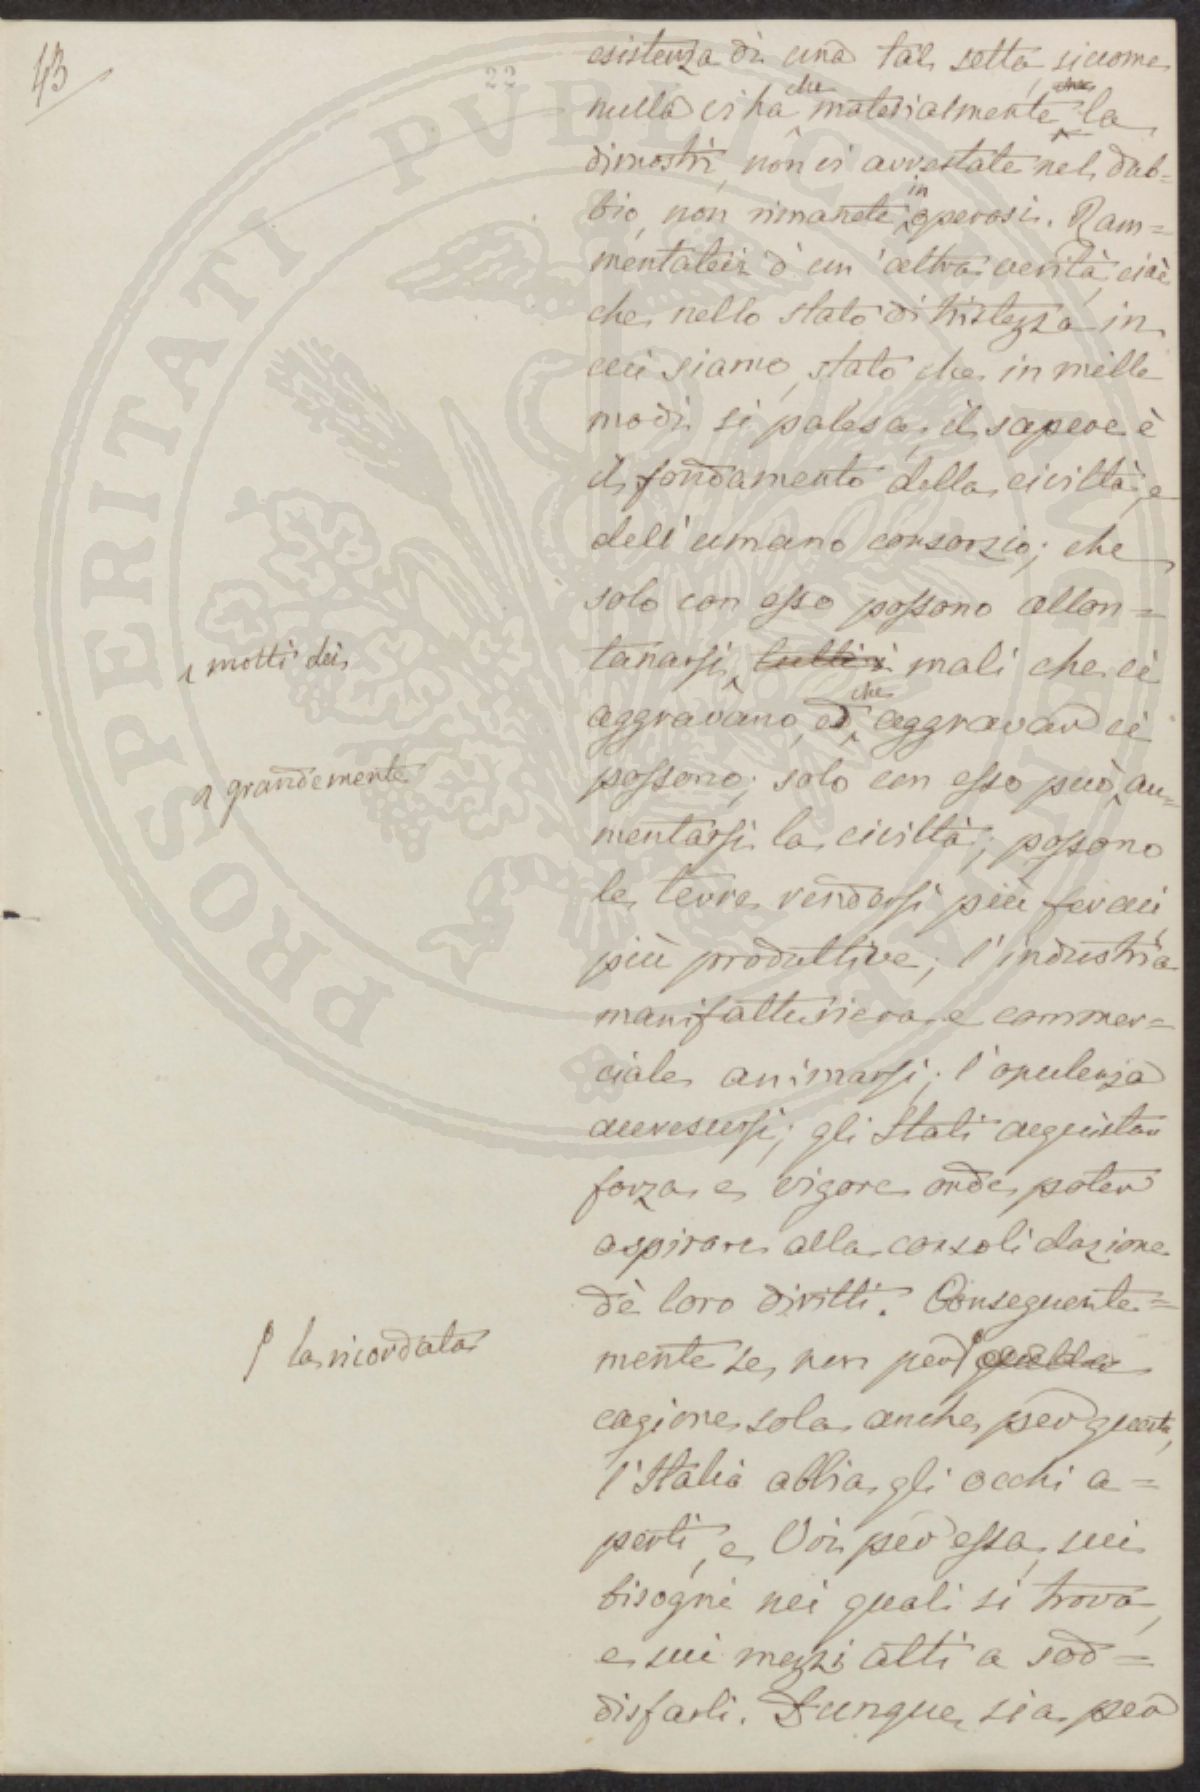 43
22
esistenza di una tal setta, siccome
che che
nulla ci ha materialmente la
dimostri, non vi arrestate nel dub=
in
bio, non rimanete operosi. Ram=
mentatevi d'un'altra verità, cioè
che nello stato di tristezza in
cui siamo, stato che in mille
modi si palesa, il sapere è
il fondamento della civiltà, e
dell'umano consorzio; che
solo con esso possono allon=
molti dei
tanarsi tutti i mali che ci
che
aggravano, ed aggravar ci
grandemente
possono; solo con esso può au=
mentarsi la civiltà; possono
le terre rendersi più feraci
più produttive; l'industria
manifatturiera e commer=
ciale animarsi; l'opulenza
accrescersi; gli Stati acquistar
forza e vigore onde poter
aspirare alla consolidazione
dè loro diritti. Conseguente=
la ricordata
mente se non per quella
cagione sola anche per questa,
l'Italia abbia gli occhi a=
perti, e Voi per essa, sui
bisogni nei quali si trova,
e sui mezzi atti a sod=
disfarli. Dunque sia per
PROSPERITATI PUBLICAE